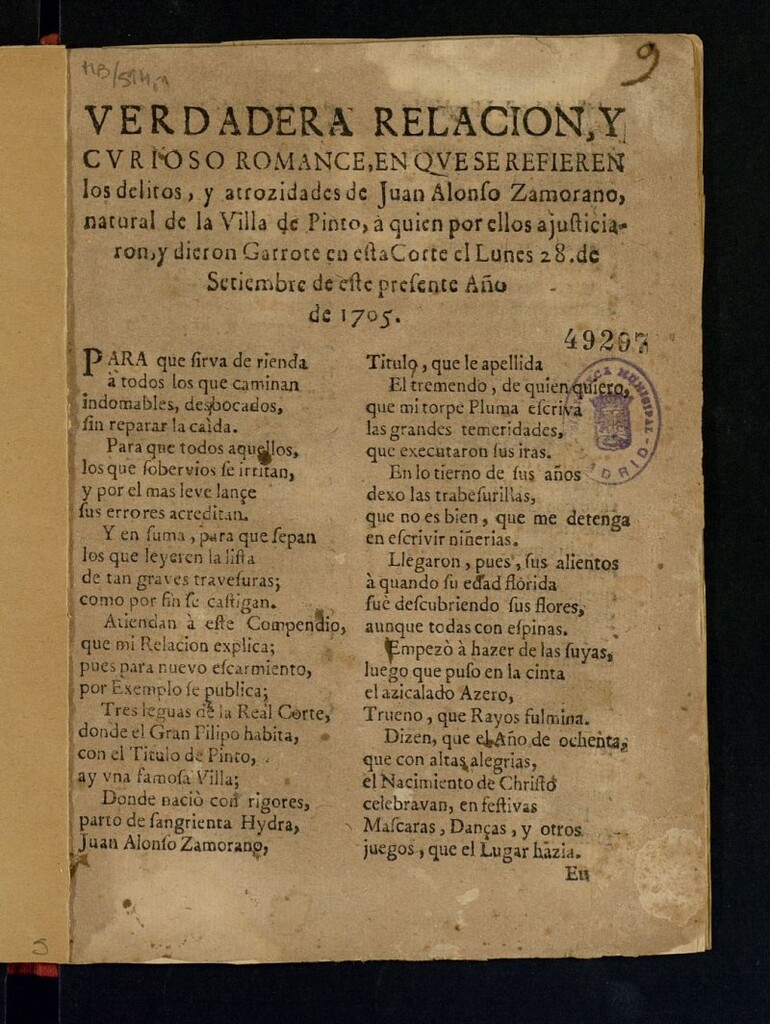 9
VERDADERA RELACION, Y
CVRIOSO ROMANCE, EN QVE SE REFIEREN
los delitos, y atrozidades de Juan Alonſo Zamorano,
natural de la Villa de Pinto, à quien por ellos ajuſticia-
ron, y dieron Garrote en eſta Corte el Lunes 28. de
Setiembre de eſte preſente Año
de 1705.
49207
PARA que ſirva de rienda
à todos los que caminan
indomables, desbocados,
ſin reparar la caìda.
Para que todos aquellos,
los que ſobervios ſe irritan,
y por el mas leve lançe
ſus errores acreditan.
Y en ſuma, para que ſepan
los que leyeren la liſta
de tan graves traveſuras;
como por fin ſe caſtigan.
Atiendan à eſte Compendio,
que mi Relacion explica;
pues para nuevo eſcarmiento,
por Exemplo ſe publica;
Tres leguas de la Real Corte,
donde el Gran Filipo habita,
con el Titulo de Pinto,
ay vna famoſa Villa;
Donde naciò con rigores,
parto de ſangrienta Hydra,
Juan Alonſo Zamorano,
Titulo, que le apellida
El tremendo, de quien quiero,
que mi torpe Pluma eſcriva
las grandes temeridades,
que executaron ſus iras.
En lo tierno de ſus años
dexo las trabeſurillas,
que no es bien, que me detenga
en eſcrivir niñerias.
Llegaron, pues, ſus alientos
à quando ſu edad florida
fuè deſcubriendo ſus flores,
aunque todas con eſpinas.
Empezò à hazer de las ſuyas,
luego que puſo en la cinta
el azicalado Azero,
Trueno, que Rayos fulmina.
Dizen, que el Año de ochenta,
que con altas alegrias,
el Nacimiento de Chriſto
celebravan, en feſtivas
Maſcaras, Danças, y otros
juegos, que el Lugar hazia.
En
MUNICIPAL